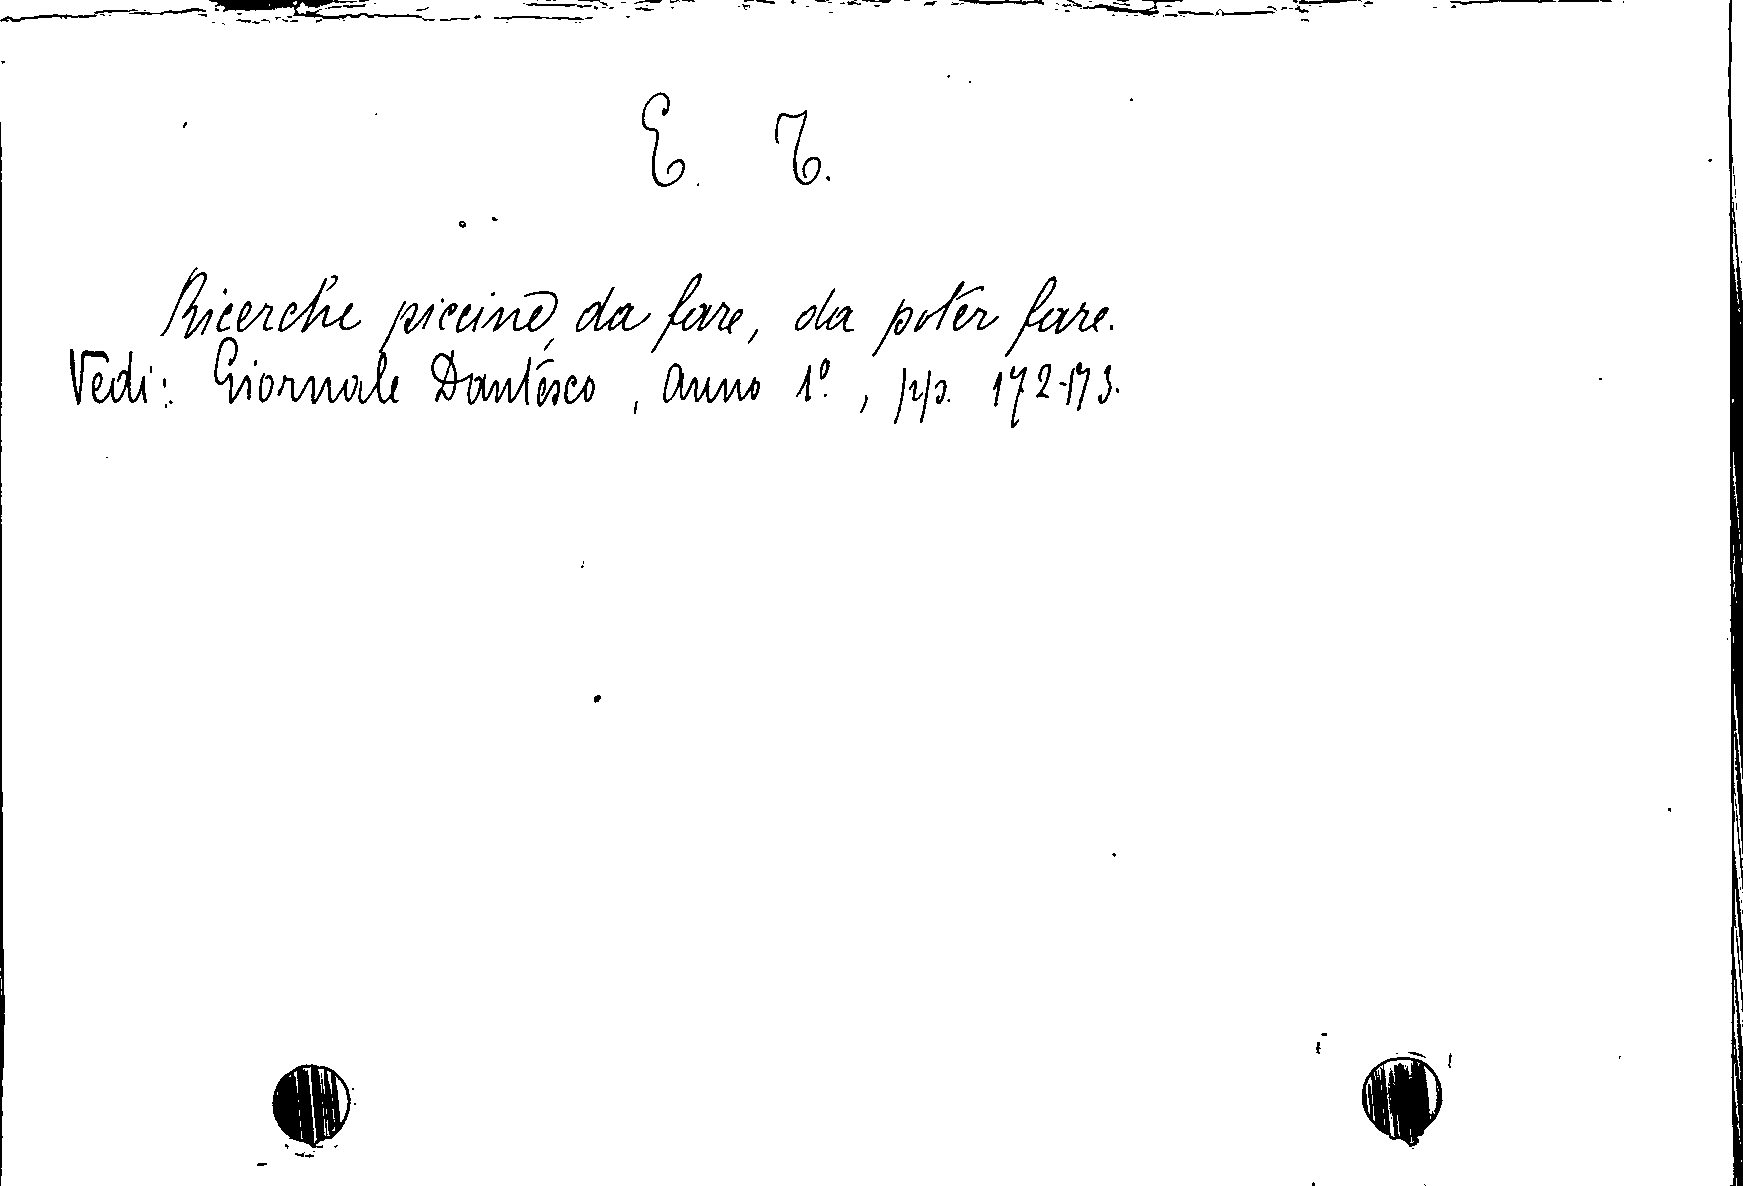 E. T.
Ricerche piccine, da fare, da poter fare.
Vedi: Giornale Dantesco, anno 1º, pp. 172-173.